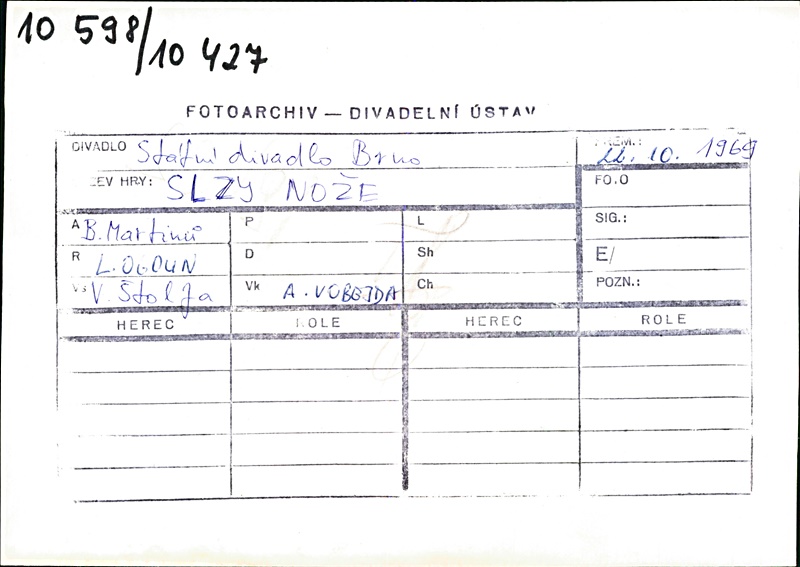 10 598/10 427
FOTOARCHIV — DIVADELNÍ ÚSTAV
DIVADLO Státní divadlo Brno
PREM.: 22. 10. 1969
ZEV HRY: SLZY NOŽE
FO.O
A B. Martinů
P
L
SIG.:
R
D
Sh
E/
Vs V. Štolfa
Vk A. VOBEJDA
Ch
POZN.:
HEREC ROLE HEREC ROLE